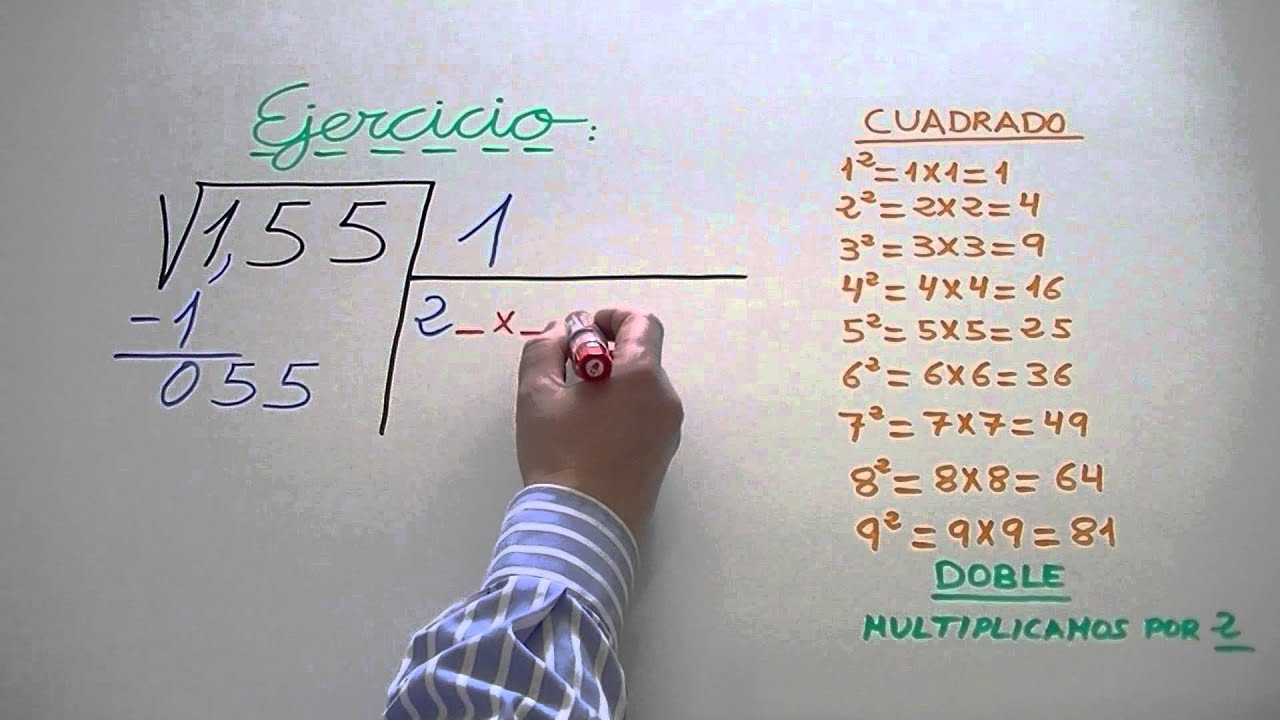 Ejercicio:
√1,55 1
-1 2_x_
055
CUADRADO
1²=1x1=1
2²=2x2=4
3²=3x3=9
4²=4x4=16
5²=5x5=25
6²=6x6=36
7²=7x7=49
8²=8x8=64
9²=9x9=81
DOBLE
MULTIPLICAMOS POR 2